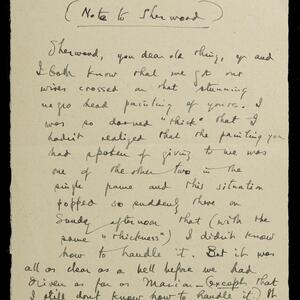 (Note to Sherwood)
Sherwood, you dear old thing, you and
I both know that we got our
wires crossed on that stunning
negro head painting of yours. I
was so darned "thick" that I
hadn't realized that the painting you
had spoken of giving to me was
one of the other two in the
single frame and this situation
popped so suddenly there on
Sunday afternoon that (with the
same "thickness") I didn't know
how to handle it. But it was
all as clear as a bell before we had
driven as far as Marion – except that
I still don't know how to handle it. It